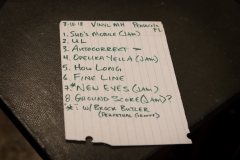 8-10-18 VINYL MH PENSACOLA FL
1. SHE'S MOBILE (JAM)
2. UL
3. AUTOCORRECT →
4. OPELIKA YELLA (JAM)
5. HOW LONG
6. FINE LINE
7.* NEW EYES (JAM)
8. GROUND SCORE (JAM)?
*: W/ BROCK BUTLER
(PERPETUAL GROOVE)